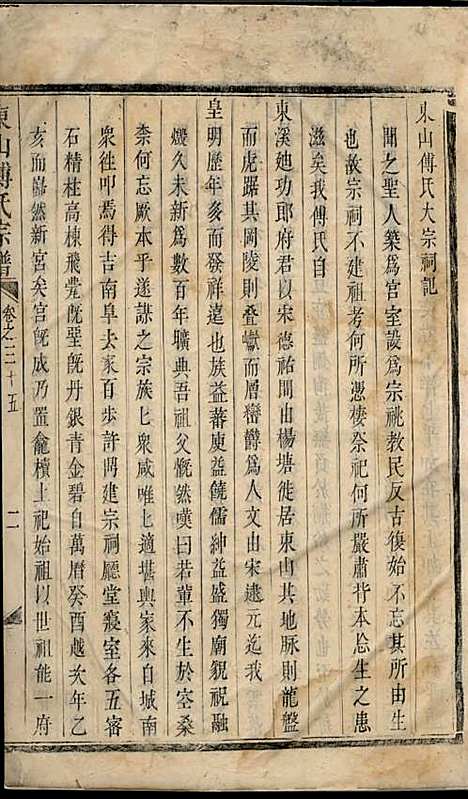 東山傅氏大宗祠記
聞之聖人築為宮室設為宗祧教民反古復始不忘其所由生
也故宗祠不建祖考何所憑棲祭祀何所嚴肅拌本忩生之患
滋矣我傅氏自
東溪𪠳功郎府君以宋德祐間由楊塘徙居東山其地脉則龍盤
而虎踞其岡陵則叠巘而層巒欝為人文由宋逮元迄我
皇明歷年多而發祥遠也族益蕃庾益饒儒紳益盛獨廟貌祝融
燬久未新為數百年曠典吾祖父慨然嘆曰若輩不生於空桑
柰何忘厥本乎遂謀之宗族七衆咸唯七適堪輿家來自城南
衆徃叩焉得吉南阜去家百歩許閧建宗祠廳堂寢室各五審
石精柱高棟飛甍旣堊旣丹銀青金碧自萬曆癸酉越次年乙
亥而巋然新宮矣宮旣成乃置龕櫝上祀始祖以世祖能一府
東山傅氏宗譜
卷之三十五
二